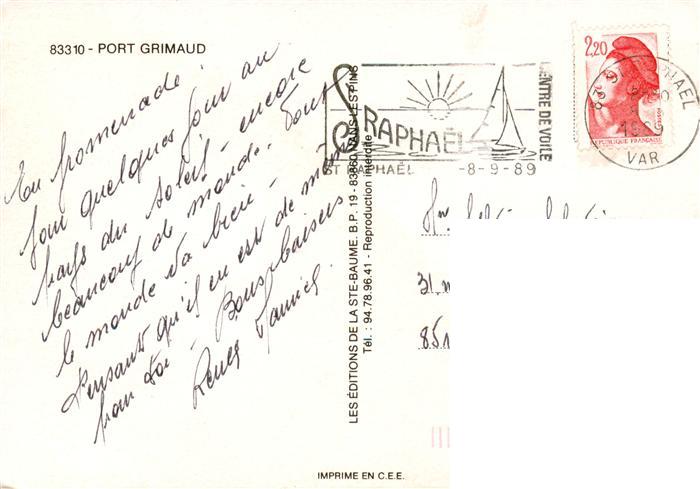 83310 - PORT GRIMAUD
En promenade
pour quelques jours au
pays du soleil - encore
beaucoup de monde. Tout
le monde va bien -
Pensant qu'il en est de même
pour toi - Bons baisers
Renée
LES ÉDITIONS DE LA STE-BAUME. B.P. 19 - 83860 NANS LES PINS
Tél. : 94.78.96.41 - Reproduction interdite
IMPRIME EN C.E.E.
ST RAPHAËL
CENTRE DE VOILE
ST RAPHAËL -8-9-89
2,20
REPUBLIQUE FRANÇAISE
83 RAPHAEL
1989
VAR
31
851